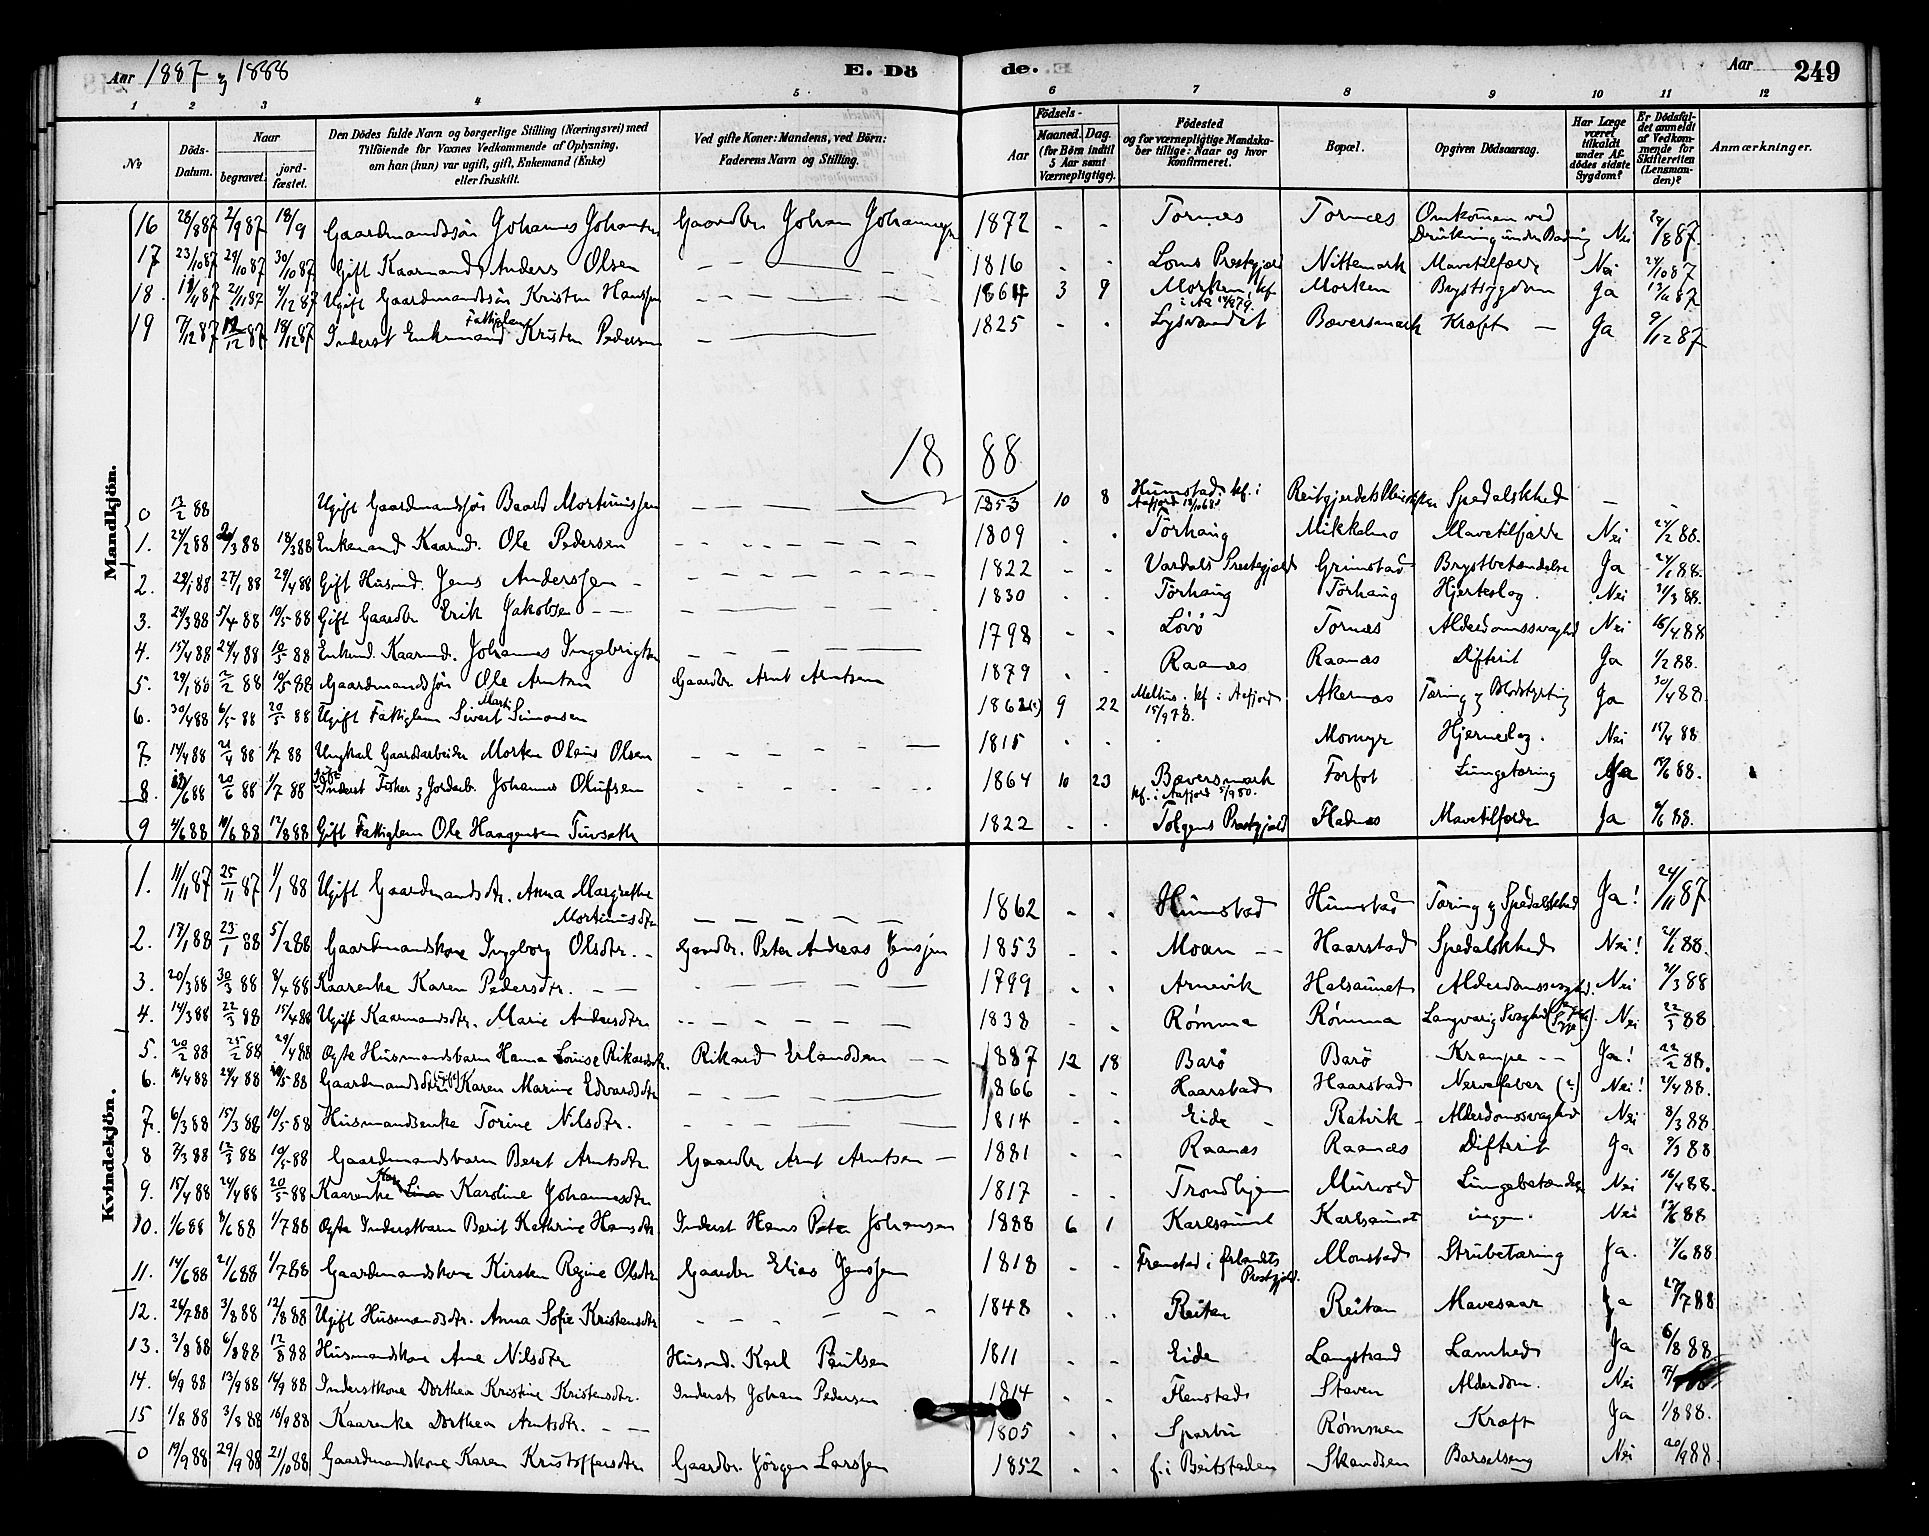 Aar 1887 & 1888 E. Dö de. Aar 249
1 2 3 4 5 6 7 8 9 10 11 12
No Döds-Datum. Naar begravet. jord-fæstet. Den Dödes fulde Navn og borgerlige Stilling (Næringsvei) med Tilföiende for Voxnes Vedkommende af Oplysning, om han (hun) var ugift, gift, Enkemand (Enke) eller fraskilt. Ved gifte Koner: Mandens, ved Börn: Faderens Navn og Stilling. Födsels- Aar Maaned. Dag. (for Börn indtil 5 Aar samt Værnepligtige). Födested og for værnepligtige Mandskaber tillige: Naar og hvor konfirmeret. Bopæl. Opgiven Dödsaarsag. Har Læge været tilkaldt under Afdödes sidste Sygdom? Er Dödsfaldet anmeldt af Vedkommende for Skifteretten (Lensmanden)? Anmærkninger.
Mandkjön.
16 28/8 87 2/9 87 18/9 Gaardmandssøn Johannes Johansen Gaardbr. Johan Johannesen 1872 - - Tornes Tornes Omkommen ved Drukning under Bading Nei 29/8 87.
17 23/10 87 29/10 87 30/10 87 Gift Kaarmand Anders Olsen 1816 - - Loms Prestgjeld Nittemark Mavetilfælde Nei 24/10 87
18. 87 2/11 87 4/12 87 Ugift Gaardmandssøn Kristen Hansen 1864 3 9 Morken kf. Morken Brystsygdom Ja 87
19 7/12 87 12/12 87 18/12 87 Inderst Enkemand Fattiglem Kristen Pedersen 1825 - - Lysvandet Bæversmark Kræft — Ja 9/12 87
1888
0 13/2 88 Ugift Gaardmandssøn Baard Mortinussen 1853 10 8 Humstad. kf. i Aafjord 68 Reitgjerdets Spedalskhed — -
1. 24/2 88 3 88 18/3 88 Enkemand Kaarmd. Ole Pedersen 1809 - - Törhaug Mikkelmo Mavetilfælde Nei 24/2 88.
2. 20/1 88 27/1 88 29/4 88 Gift Husmd. Jens Anderssen - 1822 - - Vardals Prestgjeld Grimstad Brystbetændelse Ja 24/1 88.
3. 24/3 88 5/4 88 10/5 88 Gift Gaardbr. Erik Jakobsen 1830 - - Törhaug Törhaug Hjerteslag. Nei 31/3 88.
4. 15/4 88 24/4 88 10/5 88 Enkmd. Kaarmd. Johannes Ingebrigtsen 1798 - - Lövö Tornes Alderdomssvaghed Nei 16/4 88
5. 29/1 88 2/2 88 10/5 88 Gaardmandssøn Ole Arntsen Gaardbr. Arnt Arntsen 1879 - - Raanes Raanes Difterit Ja 1/2 88.
6. 30/4 88 6/5 88 20/5 88 Ugift Fattiglem Sivert Marti Simonsen 1862(?) 9 22 Meltus. kf. i Aafjord 15/9 78. Akernes Tæring & Blodstyrtning Ja 30/4 88
7. 14/4 88 21/4 88 1/7 88 Ungkarl Gaardarbeider Morten Olaus Olsen 1815 - - - Momyr Hjerneslag. Nei 15/4 88
8. 13/6 88 20/6 88 1/7 88 Inderst Fisker & Jordarb. Johannes Olufsen 1864 10 23 Bæversmark kf. i Aafjord 5/9 80. Forfot Lungetæring Ja 15/6 88.
9 4/6 88 10/6 88 12/8 88 Gift Fattiglem Ole Haagensen Tursæth 1822 - - Tolgens Prestgjeld Fladnes Mavetilfælde Ja 6/6 88.
Kvindekjön.
1. 11/11 87 25/11 87 1/1 88 Ugift Gaardmandsdtr. Anna Margrethe Mortinusdtr 1862 - - Humstad Humstad Tæring & Spedalskhed Ja! 24/11 87
2. 17/1 88 23/1 88 5/2 88 Gaardmandskone Ingeborg Olsdtr. - Gaardbr. Peter Andreas Jenssen 1853 - - Moan - - Haarstad Spedalskhed Nei! 21/1 88.
3. 20/3 88 30/3 88 8/4 88 Kaarenke Karen Pedersdtr. 1799 - - Arnevik Halsaunet Alderdomssvaghed. Nei 31/3 88
4. 14/3 88 22/3 88 15/4 88 Ugift Kaarmandsdtr. Marie Andersdtr 1838 - - Römma Römma Langvarig Svaghed Nei 22/3 88
5. 20/2 88 25/2 88 29/4 88 Ægte Husmandsbarn Hanna Louise Rikardsdtr. Rikard Erlandsen - - 1887 12 18 Barö Barö Krampe - - Ja! 22/2 88.
6. 16/4 88 24/4 88 10/5 88 Gaardmandsdtr Karen Marine Edvardsdtr 1866 Haarstad Haarstad Nervefeber (?) Nei! 21/4 88.
7. 6/3 88 15/3 88 10/5 88 Husmandsenke Torine Nilsdtr. 1814 - - Eide - Ratvik - Alderdomssvaghed Nei 8/3 88.
8 2/3 88 12/3 88 10/5 88 Gaardmandsbarn Beret Arntsdtr Gaardbr Arnt Arntsen — 1881 - - Raanes Raanes Difterit Ja 3/3 88
9. 15/4 88 24/4 88 20/5 88 Kaarenke Karoline Johannesdtr 1817 - - Trondhjem Murvold Lungebetændelse Nei 16/4 88.
10. 1/6 88 8/6 88 1/7 88 Ægte Inderstbarn Berit Kathrine Hansdtr Inderst Hans Peter Johansen 1888 6 1 Karlsaunet Karlsaunet ingen. Nei 12/6 88
11. 14/6 88 21/6 88 1/7 88 Gaardmandskone Kirsten Regine Olsdtr Gaardbr Elias Jenssen 1818 - - Fremstad i Ørlandets Prestgjeld. Monstad Strubetæring Ja. 17/6 88
12. 26/7 88 3/8 88 12/8 88 Ugift Husmandsdtr. Anna Sofie Kristensdtr 1848 - - Reitan Reitan Mavesaar Ja 27/7 88
13. 3/8 88 6/8 88 12/8 88 Husmandskone Ane Nilsdtr Husmd. Karl Paulsen 1811 - - Eide Langstrand Lamhed Ja 6/8 88
14. 6/9 88 13/9 88 16/9 88 Inderstkone Dorthea Kristine Kristensdtr. Inderst Johan Pedersen 1814 - - Flenstad Staven Alderdom. Nei
15 1/8 88 3/8 88 16/9 88 Kaarenke Dorthea Arntsdtr. - — 1805 - - Sparbu Römmen Kræft Ja 1/8 88.
0 19/9 88 29/9 88 21/10 88 Gaardmandskone Karen Kristoffersdtr Gaardbr. Jörgen Larssen 1852 - - f. i Beitstaden Skandsen Barselseng Nei 20/9 88.